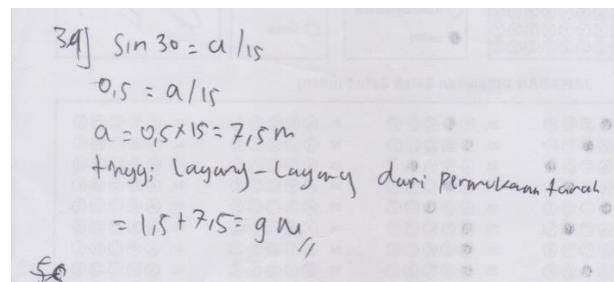 39] sin 30 = a/15
0,5 = a/15
a = 0,5 x 15 = 7,5 m
tinggi layang-layang dari permukaan tanah
= 1,5 + 7,5 = 9 m //